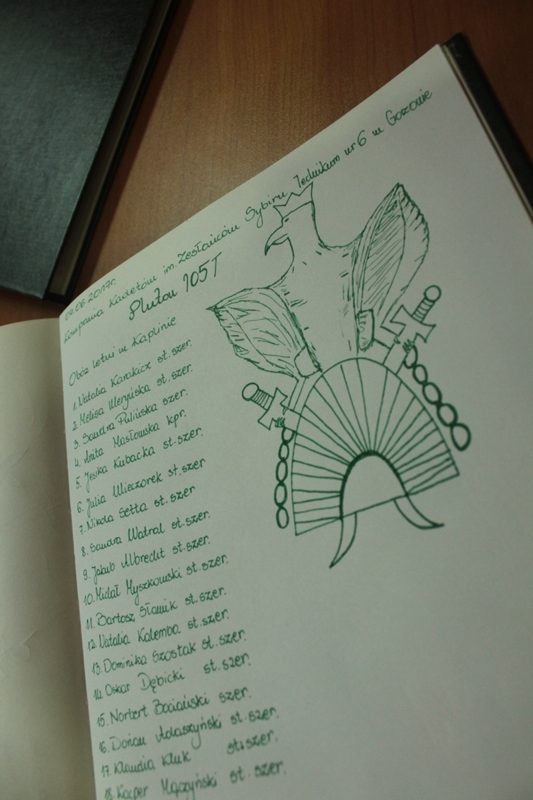 09.06.2017r.
Kompania Kadetów im. Zesłańców Sybiru Technikum nr 6 w Gorzowie
Pluton 105T
Obóz letni w Kaplinie
1. Natalia st. szer.
2. Melisa st. szer.
3. Sandra Pulińska szer.
4. Anita Masłowska kpr.
5. Jesika Kubacka st. szer.
6. Julia Wieczorek st. szer
7. Nikola Setta st. szer
8. Sandra Watral st. szer.
9. Jakub Albrecht st. szer.
10. Michał Myszkowski st. szer.
11. Bartosz Słomik st. szer.
12. Natalia Kalemba st. szer.
13. Dominika Szostak st. szer.
14. Oskar Dębicki st. szer.
15. Norbert Bociański szer.
16. Dorian Adaszyński st. szer.
17. Klaudia Kluk st. szer.
18. Kacper Mączyński st. szer.